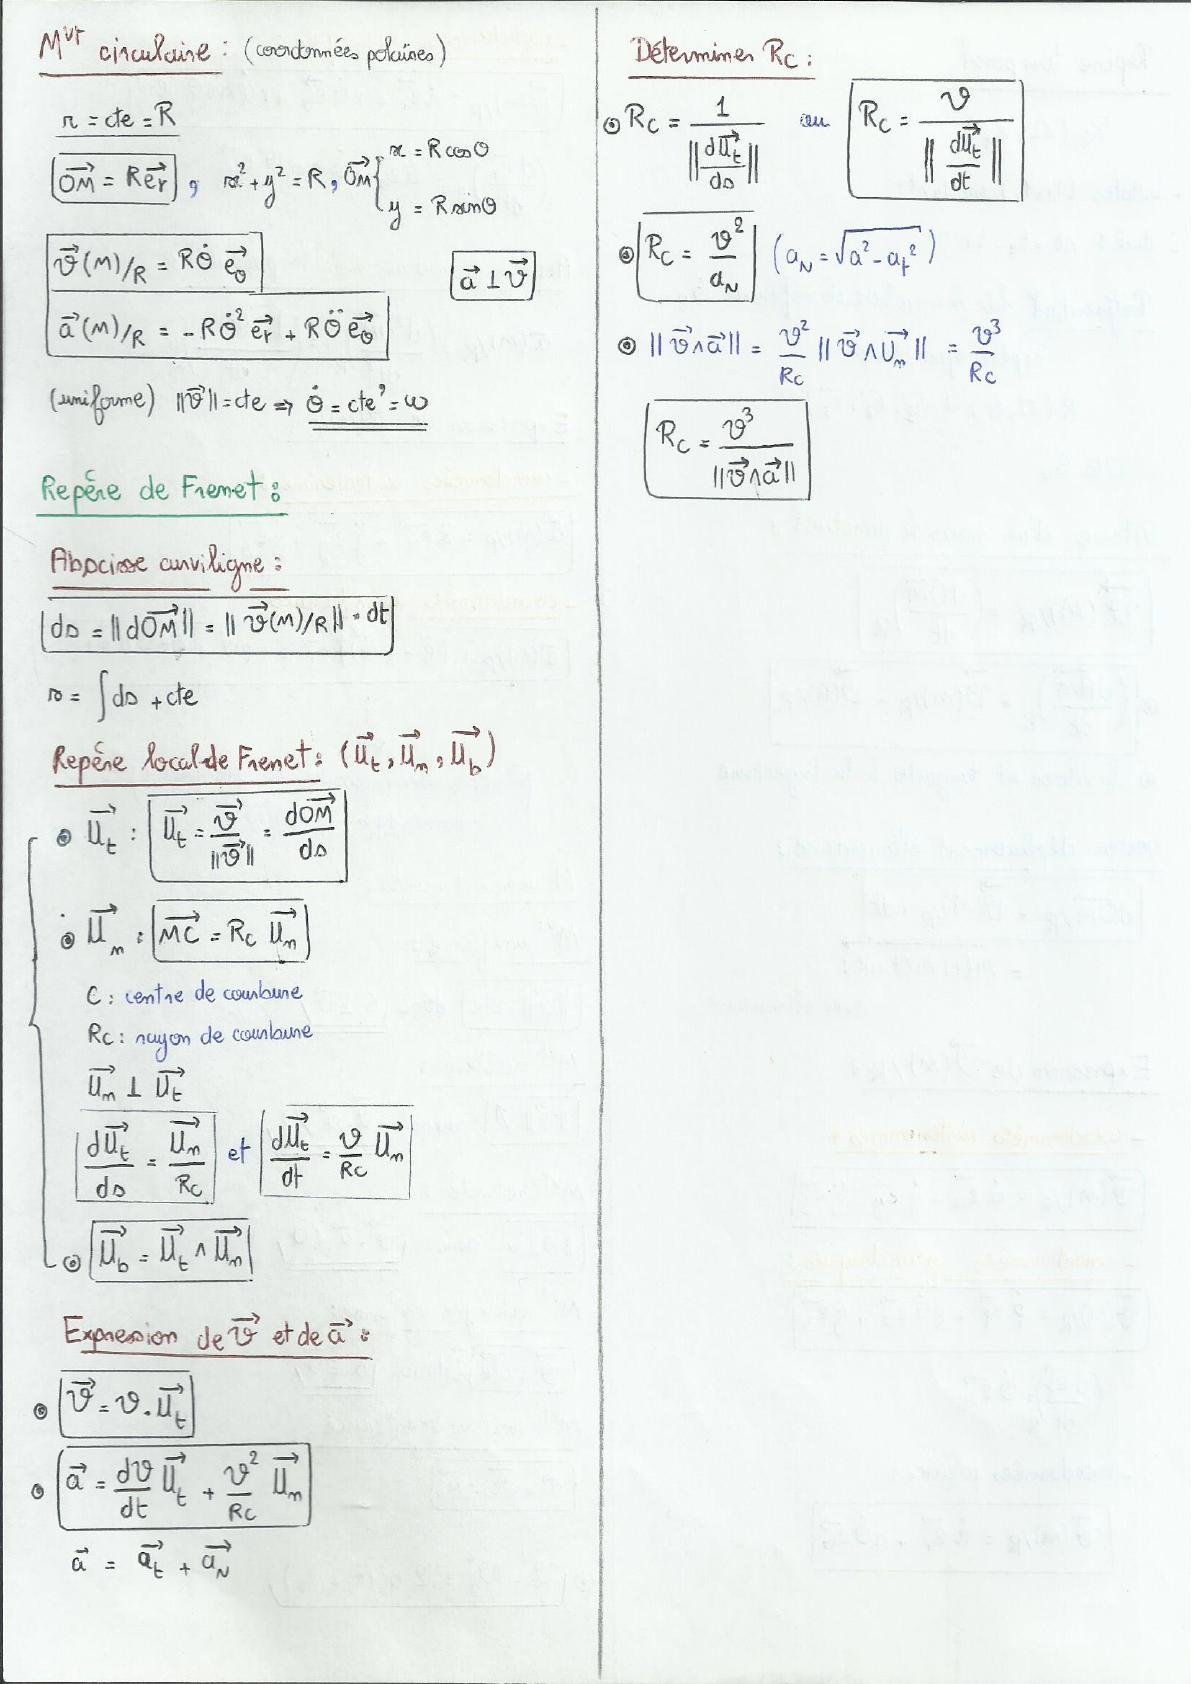 Mvt circulaire : (coordonnées polaires)
r = cte = R
OM⃗ = R e⃗r , x² + y² = R, OM⃗ { x = R cos θ
y = R sin θ
v⃗(M)/R = R θ̇ e⃗θ
a⃗ ⊥ v⃗
a⃗(M)/R = - R θ̇² e⃗r + R θ̈ e⃗θ
(uniforme) ||v⃗|| = cte ⇒ θ̇ = cte' = ω
Repère de Frenet :
Abscisse curviligne :
ds = ||dOM⃗|| = ||v⃗(M)/R|| · dt
s = ∫ ds + cte
Repère local de Frenet : (U⃗t, U⃗n, U⃗b)
• U⃗t : U⃗t = v⃗ / ||v⃗|| = dOM⃗ / ds
• U⃗n : MC⃗ = Rc U⃗n
C : centre de courbure
Rc : rayon de courbure
U⃗n ⊥ U⃗t
dU⃗t / ds = U⃗n / Rc et dU⃗t / dt = v / Rc U⃗n
• U⃗b = U⃗t ∧ U⃗n
Expression de v⃗ et de a⃗ :
• v⃗ = v . U⃗t
• a⃗ = dv/dt U⃗t + v²/Rc U⃗n
a⃗ = a⃗t + a⃗N
Déterminer Rc :
• Rc = 1 / ||dU⃗t / ds|| ou Rc = v / ||dU⃗t / dt||
• Rc = v² / aN (aN = √(a² - at²))
• ||v⃗ ∧ a⃗|| = v²/Rc ||v⃗ ∧ U⃗n|| = v³/Rc
Rc = v³ / ||v⃗ ∧ a⃗||